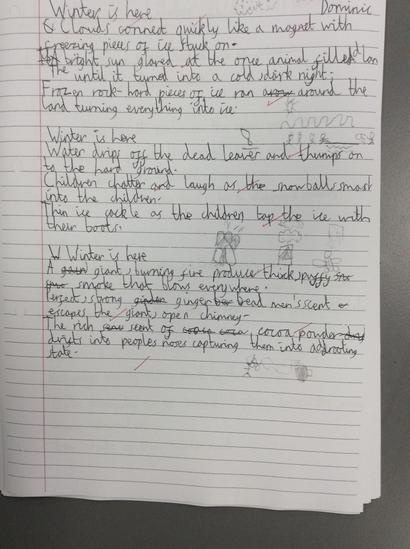 Winter is here Dominic
& Clouds connect quickly like a magnet with
freezing pieces of ice stuck on.
The bright sun glared at the once animal filled land
until it turned into a cold, dark night;
Frozen rock-hard pieces of ice ran around the
land turning everything into ice.
Winter is here
Water drips off the dead leaves and thumps on
to the hard ground.
Children chatter and laugh as the snowball smash
into the children.
Thin ice cackle as the children tap the ice with
their boots.
W Winter is here
A giant, burning fire produce thick, puffy
smoke that blows everywhere.
Perfect, strong ginger bead men's scent
escapes the giant, open chimney.
The rich scent of cocoa powder
drifts into peoples noses capturing them into a
state.